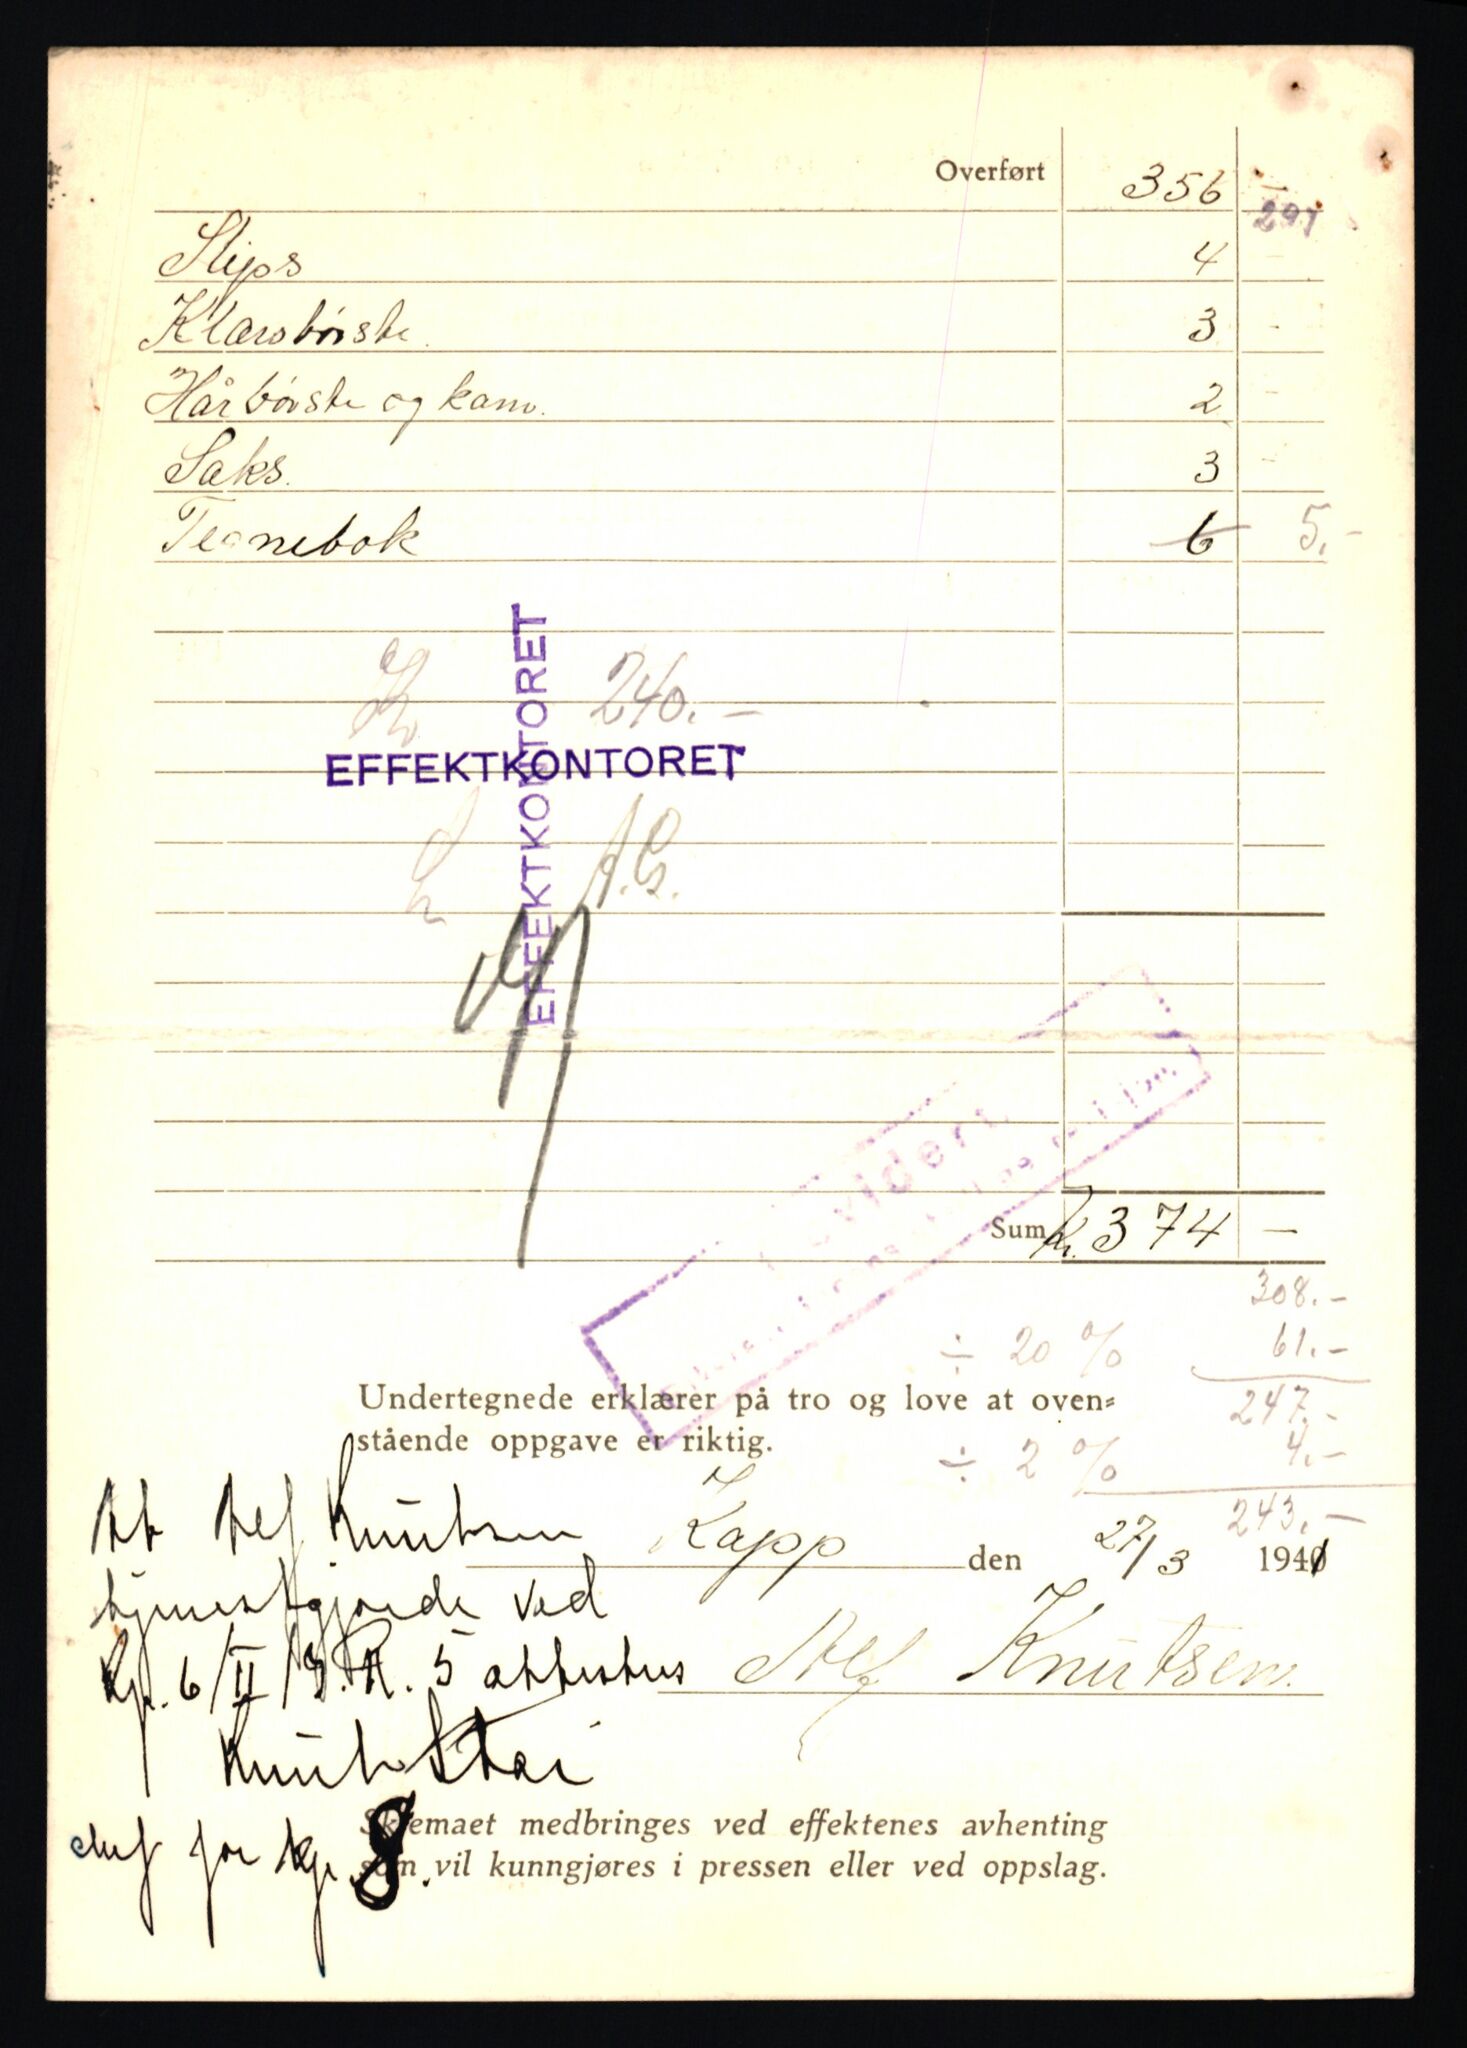 Overført 356 –
291
Slips 4 –
Klærsbørste. 3 –
Hårbørste og kam. 2 –
Saks. 3 –
Tegnebok 6 5.–
Kr 240.–
EFFEKTKONTORET
EFFEKTKONTORET
A.G.
Sum Kr. 374 –
308.–
÷ 20 % 61.–
247.–
÷ 2 % 4.–
243.–
Undertegnede erklærer på tro og love at oven=
stående oppgave er riktig.
Kapp den 27/3 1941
Alf Knutsen.
At Alf Knutsen
tjenestgjorde ved
Kp. 6/II/I.R. 5 attesteres
Knut
chef for kp 8.
Skjemaet medbringes ved effektenes avhenting
som vil kunngjøres i pressen eller ved oppslag.